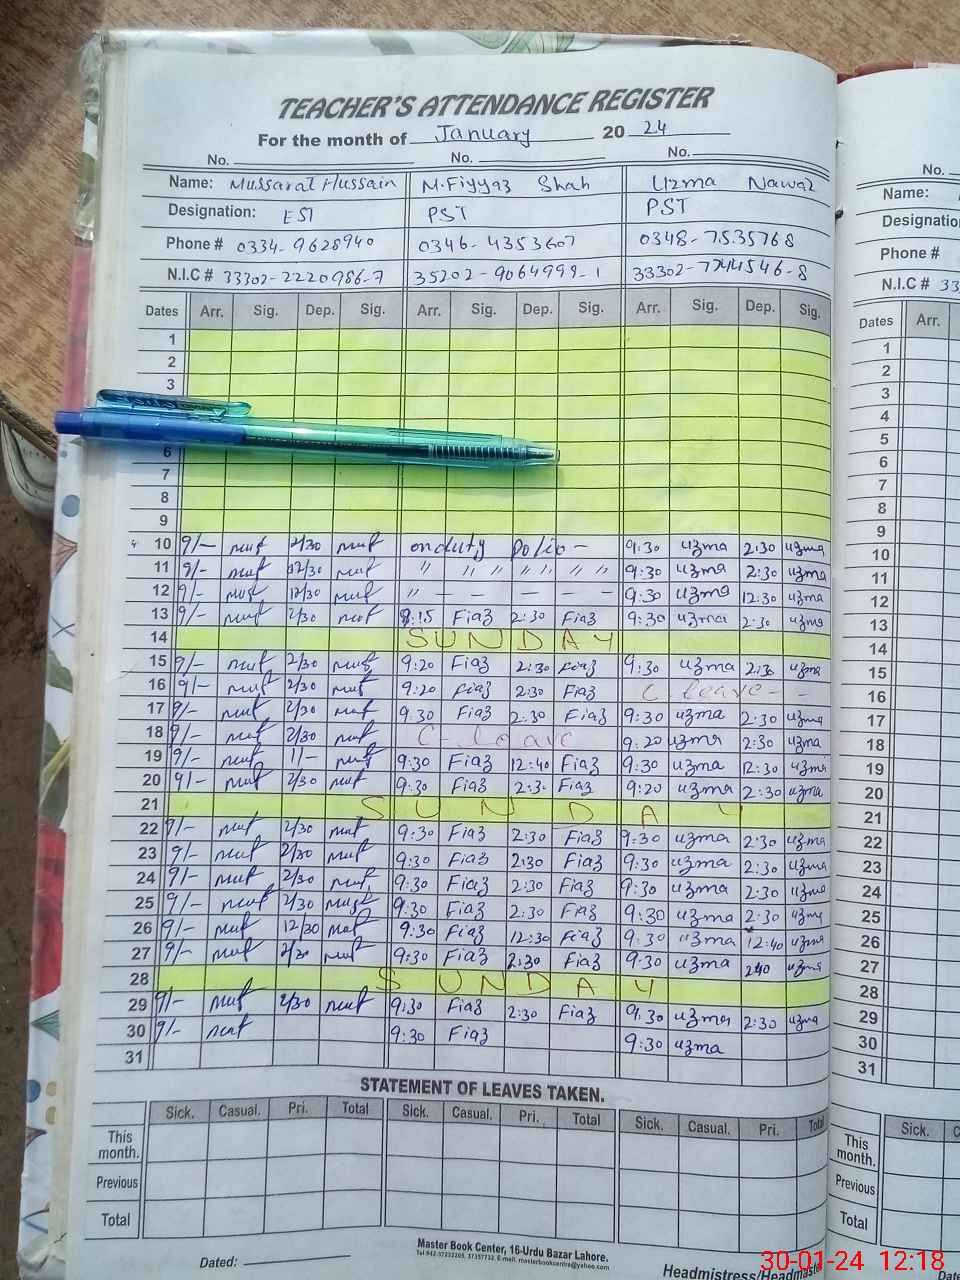 TEACHER'S ATTENDANCE REGISTER
For the month of January 20 24
No. No. No.
Name: Mussarat Hussain M.Fiyyaz Shah Uzma Nawaz
Designation: EST PST PST
Phone # 0334-9628940 0346-4353607 0348-7535768
N.I.C # 33302-2220986-7 35202-9064999-1 33302-7744546-8
Dates Arr. Sig. Dep. Sig. Arr. Sig. Dep. Sig. Arr. Sig. Dep. Sig.
1
2
3
6
7
8
9
10 9/- mut 2/30 mut onduty Polio - 9:30 uzma 2:30 uzma
11 9/- mut 12/30 mut " " " " " " " 9:30 uzma 2:30 uzma
12 9/- mut 12/30 mut " - - - - - 9:30 uzma 12:30 uzma
13 9/- mut 2/30 mut 9:15 Fiaz 2:30 Fiaz 9:30 uzma 2:30 uzma
14 SUNDAY
15 9/- mut 2/30 mut 9:20 Fiaz 2:30 Fiaz 9:30 uzma 2:30 uzma
16 9/- mut 2/30 mut 9:20 Fiaz 2:30 Fiaz C leave - -
17 9/- mut 2/30 mut 9:30 Fiaz 2:30 Fiaz 9:30 uzma 2:30 uzma
18 9/- mut 2/30 mut C- leave 9:20 uzma 2:30 uzma
19 9/- mut 11- mut 9:30 Fiaz 12:40 Fiaz 9:30 uzma 12:30 uzma
20 9/- mut 2/30 mut 9:30 Fiaz 2:30 Fiaz 9:20 uzma 2:30 uzma
21 SUNDAY
22 9/- mut 2/30 mut 9:30 Fiaz 2:30 Fiaz 9:30 uzma 2:30 uzma
23 9/- mut 2/30 mut 9:30 Fiaz 2:30 Fiaz 9:30 uzma 2:30 uzma
24 9/- mut 2/30 mut 9:30 Fiaz 2:30 Fiaz 9:30 uzma 2:30 uzma
25 9/- mut 2/30 mut 9:30 Fiaz 2:30 Fiaz 9:30 uzma 2:30 uzma
26 9/- mut 12/30 mut 9:30 Fiaz 12:30 Fiaz 9:30 uzma 12:40 uzma
27 9/- mut 2/30 mut 9:30 Fiaz 2:30 Fiaz 9:30 uzma 240 uzma
28 SUNDAY
29 9/- mut 2/30 mut 9:30 Fiaz 2:30 Fiaz 9:30 uzma 2:30 uzma
30 9/- mut 9:30 Fiaz 9:30 uzma
31
STATEMENT OF LEAVES TAKEN.
Sick. Casual. Pri. Total Sick. Casual. Pri. Total Sick. Casual. Pri. Total
This month.
Previous
Total
Dated:
Master Book Center, 16-Urdu Bazar Lahore.
Headmistress/Headmaster
No.
Name:
Designation
Phone #
N.I.C # 33
Dates Arr.
1
2
3
4
5
6
7
8
9
10
11
12
13
14
15
16
17
18
19
20
21
22
23
24
25
26
27
28
29
30
31
Sick.
This month.
Previous
Total
30-01-24 12:18